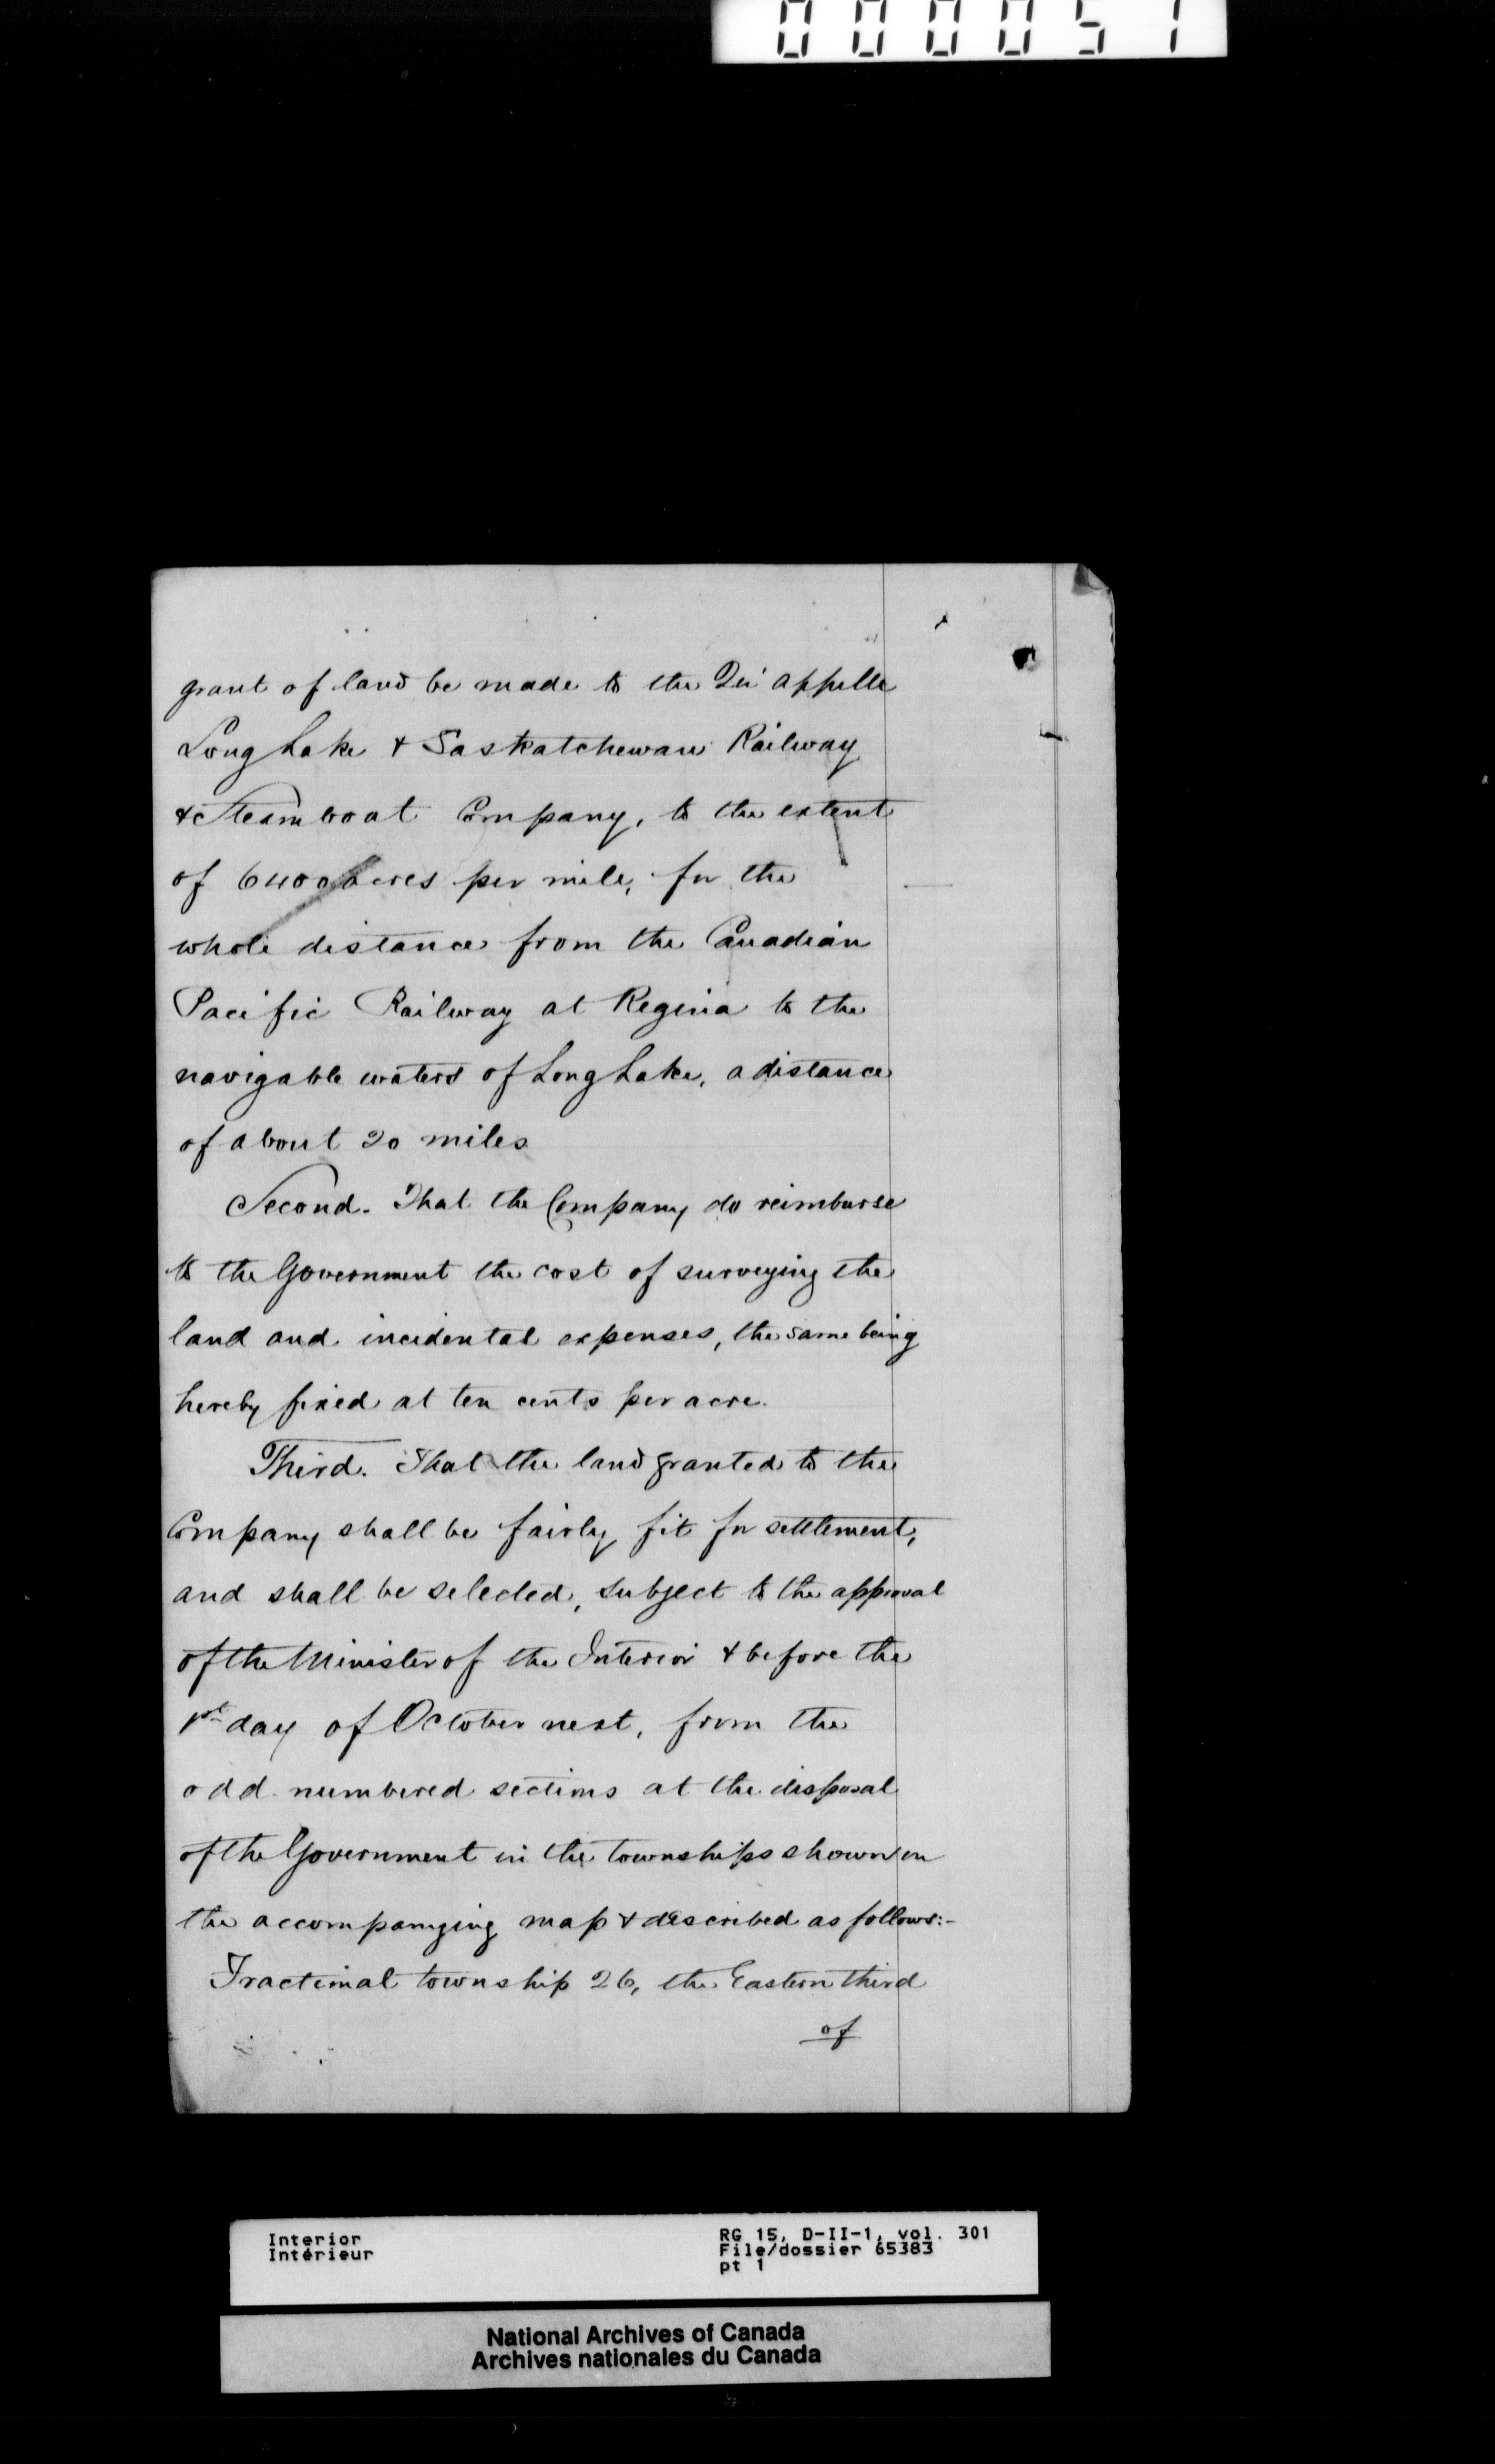 000051
grant of land be made to the Qu'appelle
Long Lake & Saskatchewan Railway
& Steamboat Company, to the extent
of 6400 acres per mile, for the
whole distance from the Canadian
Pacific Railway at Regina to the
navigable waters of Long Lake, a distance
of about 20 miles
Second. That the Company do reimburse
to the Government the cost of surveying the
land and incidental expenses, the same being
hereby fixed at ten cents per acre.
Third. That the land granted to the
Company shall be fairly fit for settlement,
and shall be selected, subject to the approval
of the Minister of the Interior & before the
1st day of October next, from the
odd numbered sections at the disposal
of the Government in the townships shown on
the accompanying map & described as follows:-
Fractional township 26, the Eastern third
of
Interior
Intérieur
RG 15, D-II-1, vol. 301
File/dossier 65383
pt 1
National Archives of Canada
Archives nationales du Canada